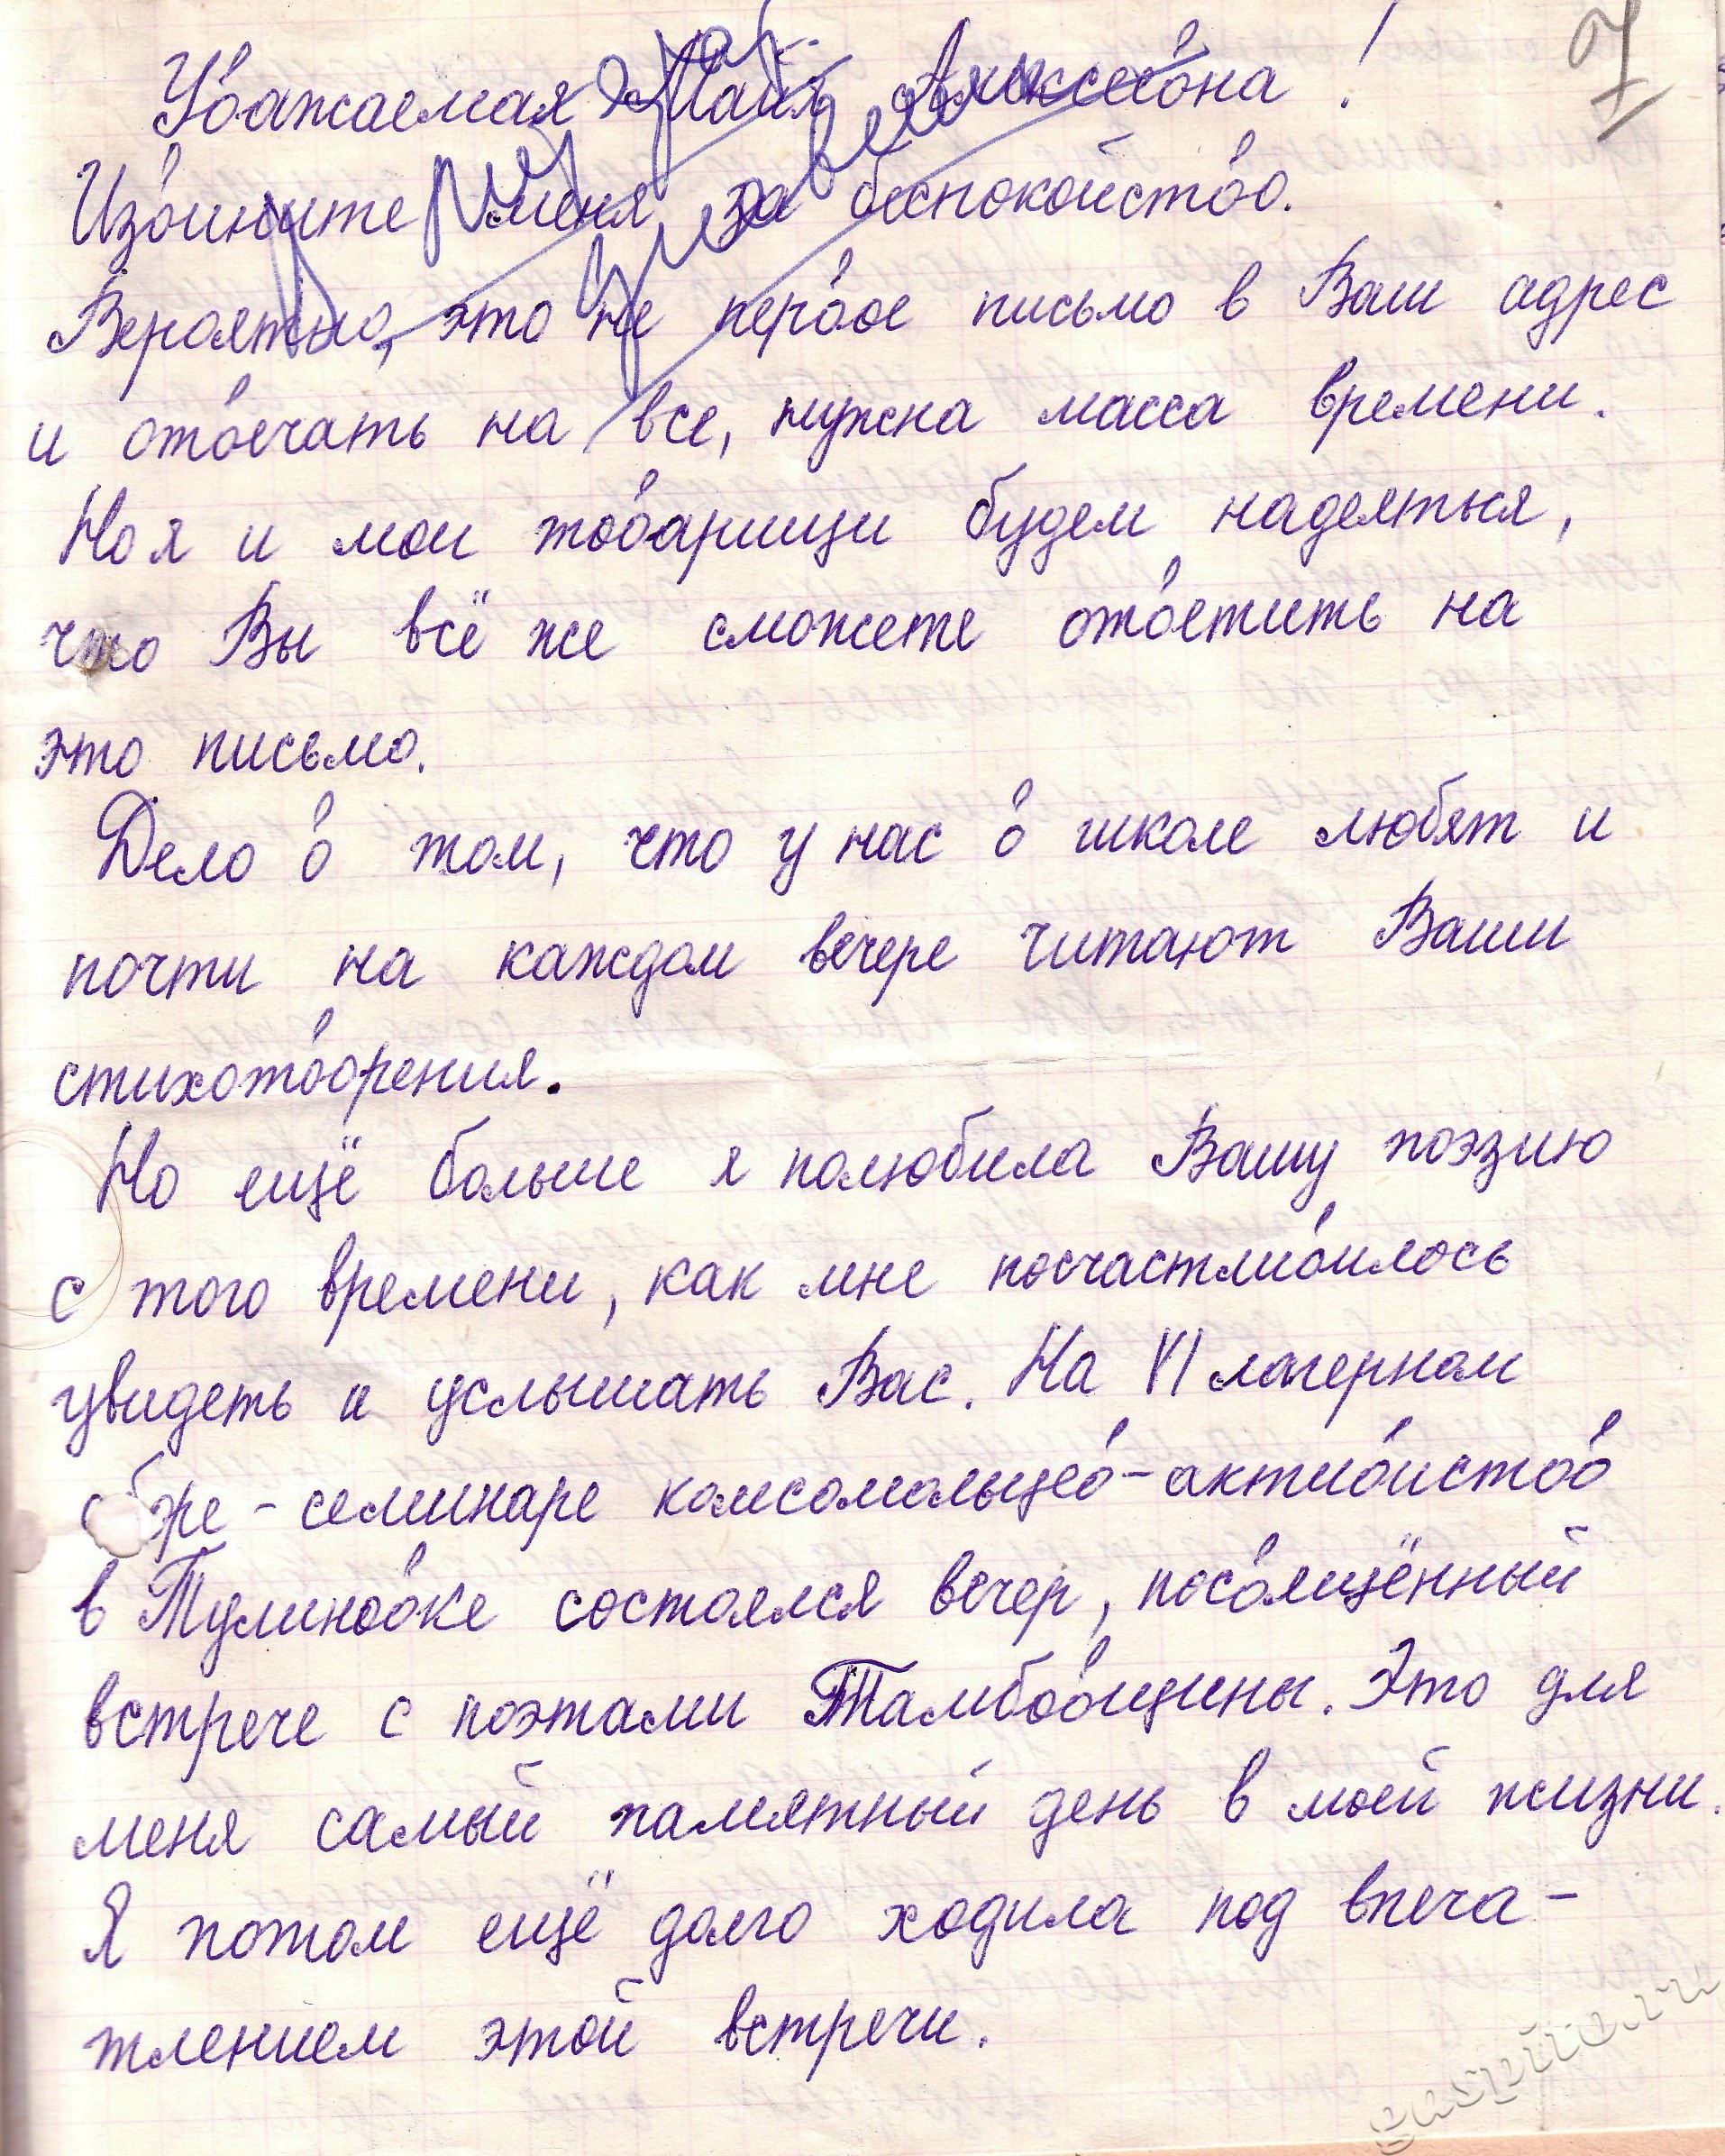 7
Уважаемая Майя Алексеевна!
Извините меня за беспокойство.
Вероятно, это не первое письмо в Ваш адрес
и отвечать на все, нужна масса времени.
Но я и мои товарищи будем надеяться,
что Вы всё же сможете ответить на
это письмо.
Дело в том, что у нас в школе любят и
почти на каждом вечере читают Ваши
стихотворения.
Но ещё больше я полюбила Вашу поэзию
с того времени, как мне посчастливилось
увидеть и услышать Вас. На VI лагерном
сборе - семинаре комсомольцев - активистов
в Тулиновке состоялся вечер, посвящённый
встрече с поэтами Тамбовщины. Это для
меня самый памятный день в моей жизни.
Я потом ещё долго ходила под впеча-
тлением этой встречи.
gaspito.ru